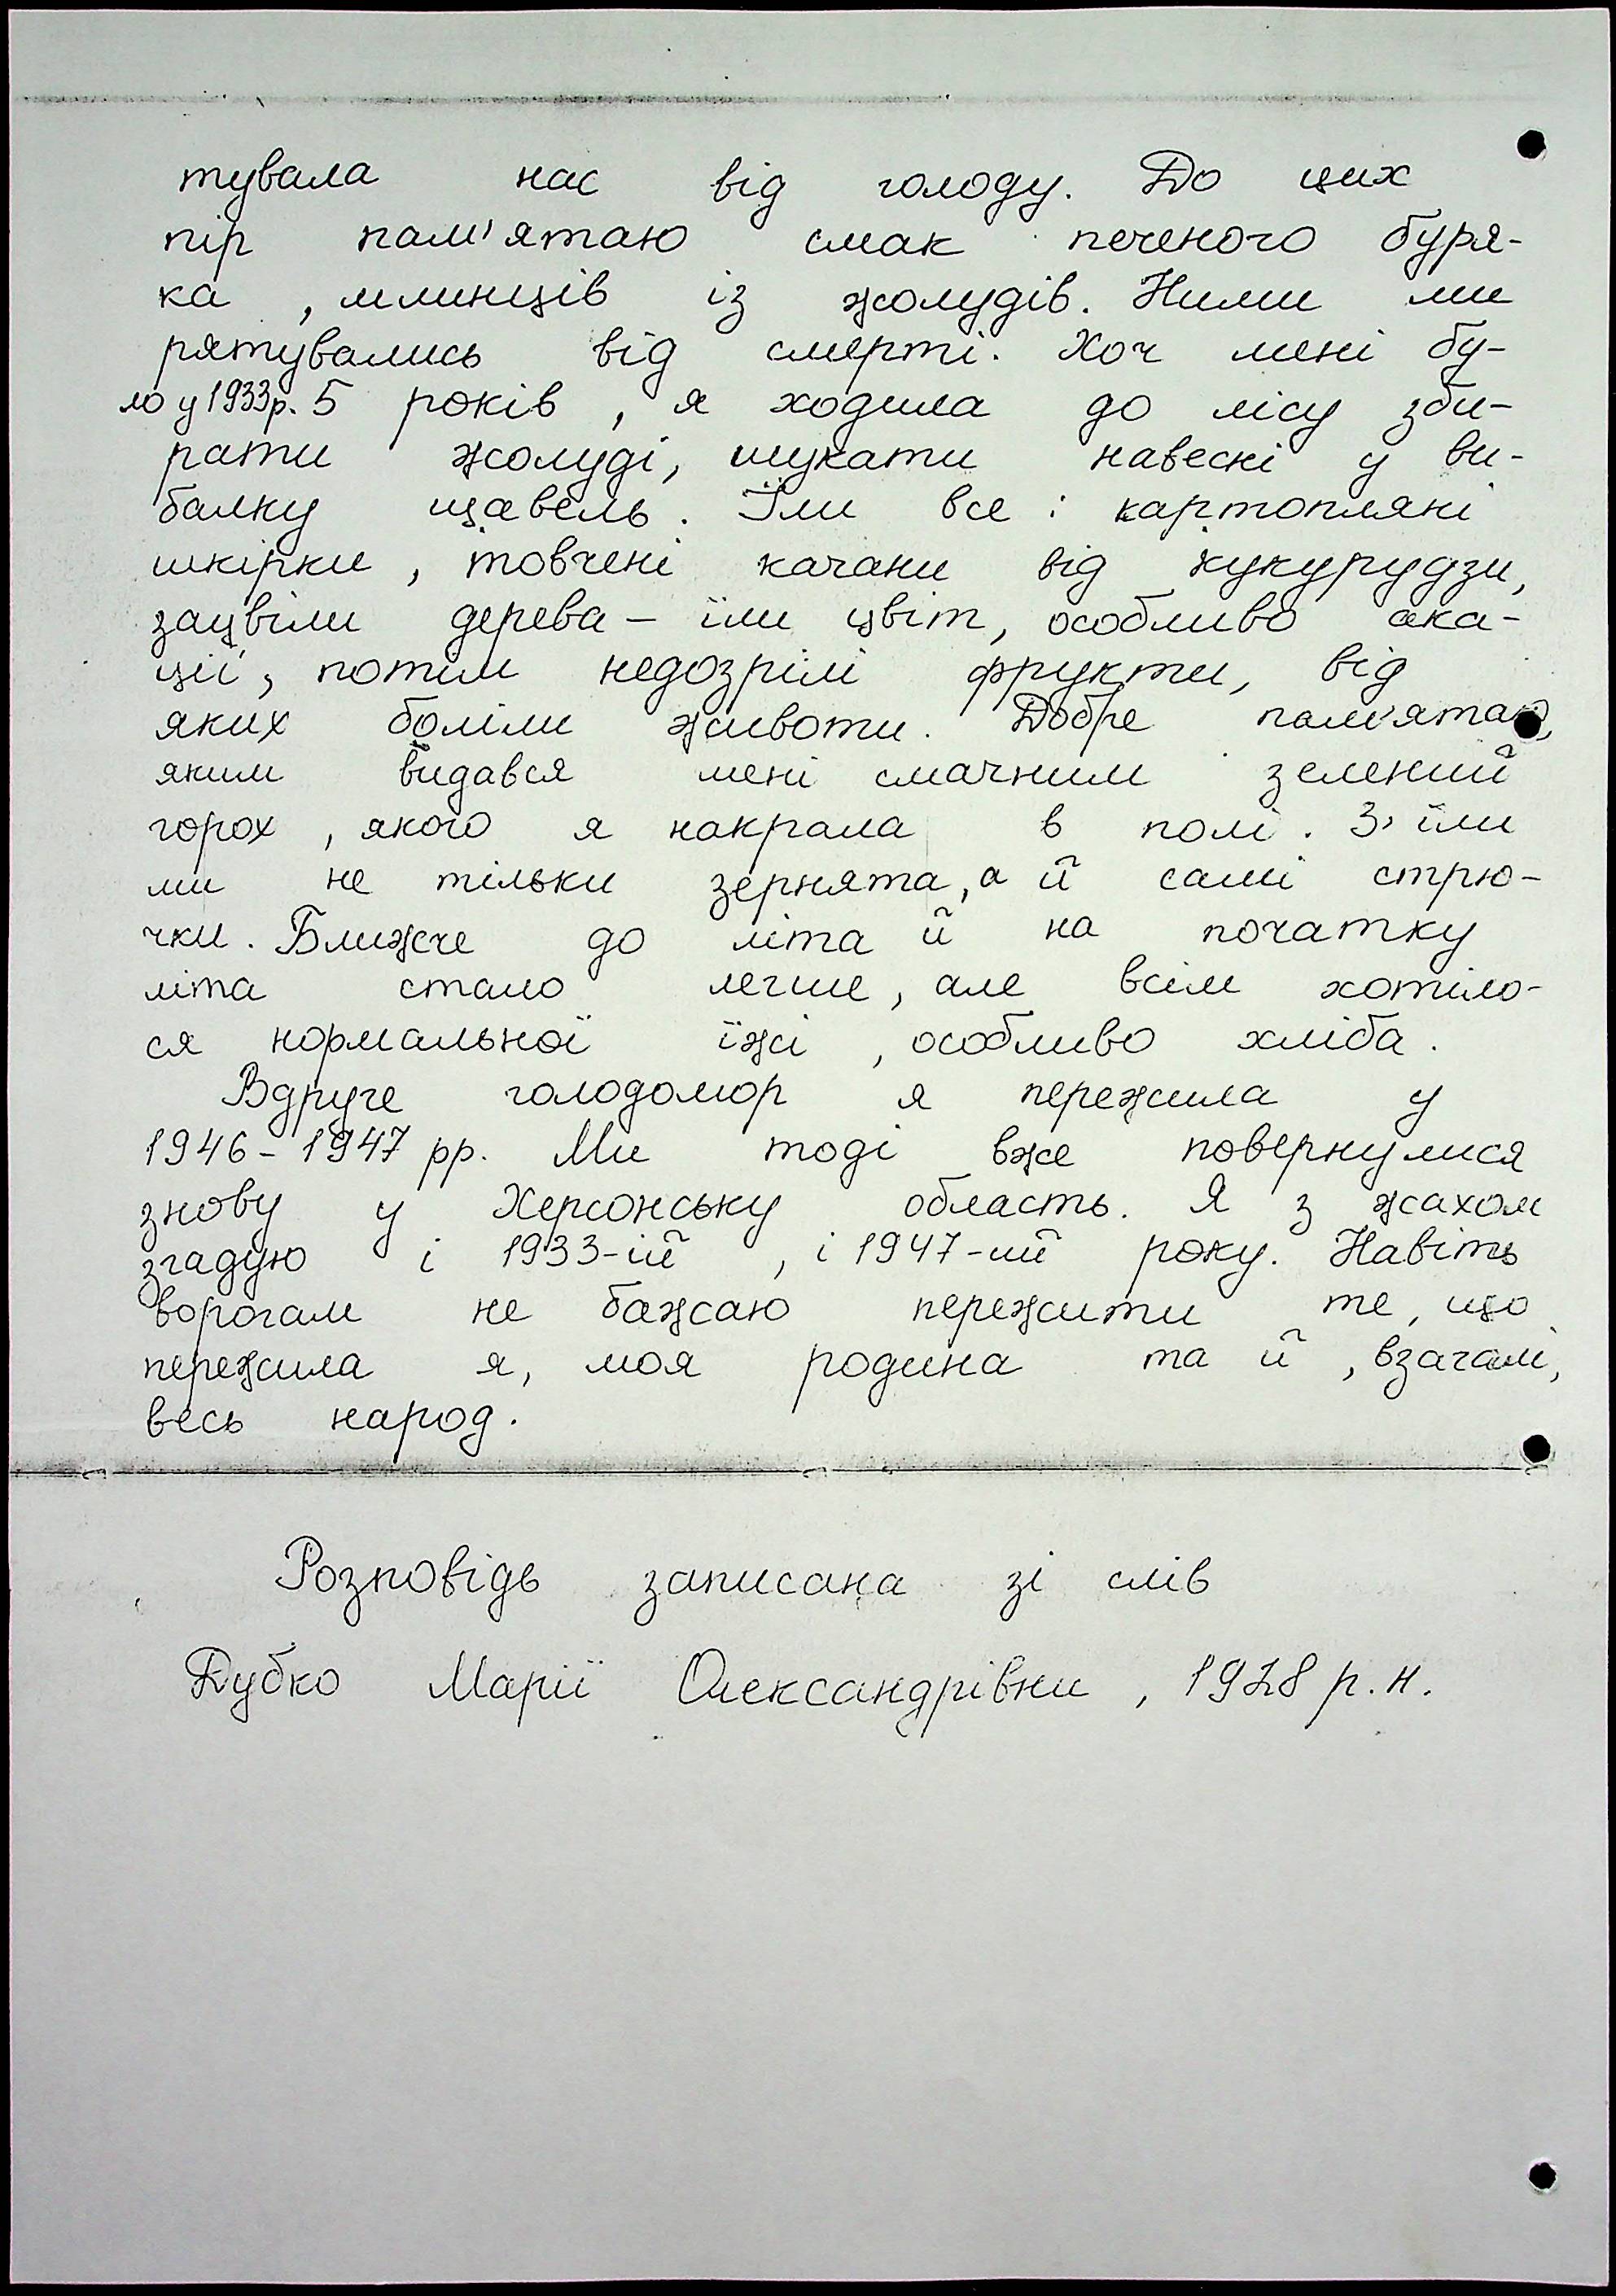 тувала нас від голоду. До цих
пір пам'ятаю смак печеного буря-
ка, млинців із жолудів. Ними ми
рятувались від смерті. Хоч мені бу-
ло у 1933р. 5 років, я ходила до лісу зби-
рати жолуді, шукати навесні у ви-
балку щавель. Їли все: картопляні
шкірки, товчені качани від кукурудзи,
зацвіли дерева – їли цвіт, особливо ака-
ції, потім недозрілі фрукти, від
яких боліли животи. Добре пам'ятаю,
яким видався мені смачним зелений
горох, якого я накрала в полі. З'їли
ми не тільки зернята, а й самі стрю-
чки. Ближче до літа й на початку
літа стало легше, але всім хотіло-
ся нормальної їжі, особливо хліба.
Вдруге голодомор я пережила у
1946-1947 рр. Ми тоді вже повернулися
знову у Херсонську область. Я з жахом
згадую і 1933-ій, і 1947-ий року. Навіть
ворогам не бажаю пережити те, що
пережила я, моя родина та й, взагалі,
весь народ.
Розповідь записана зі слів
Дубко Марії Олександрівни, 1928 р.н.